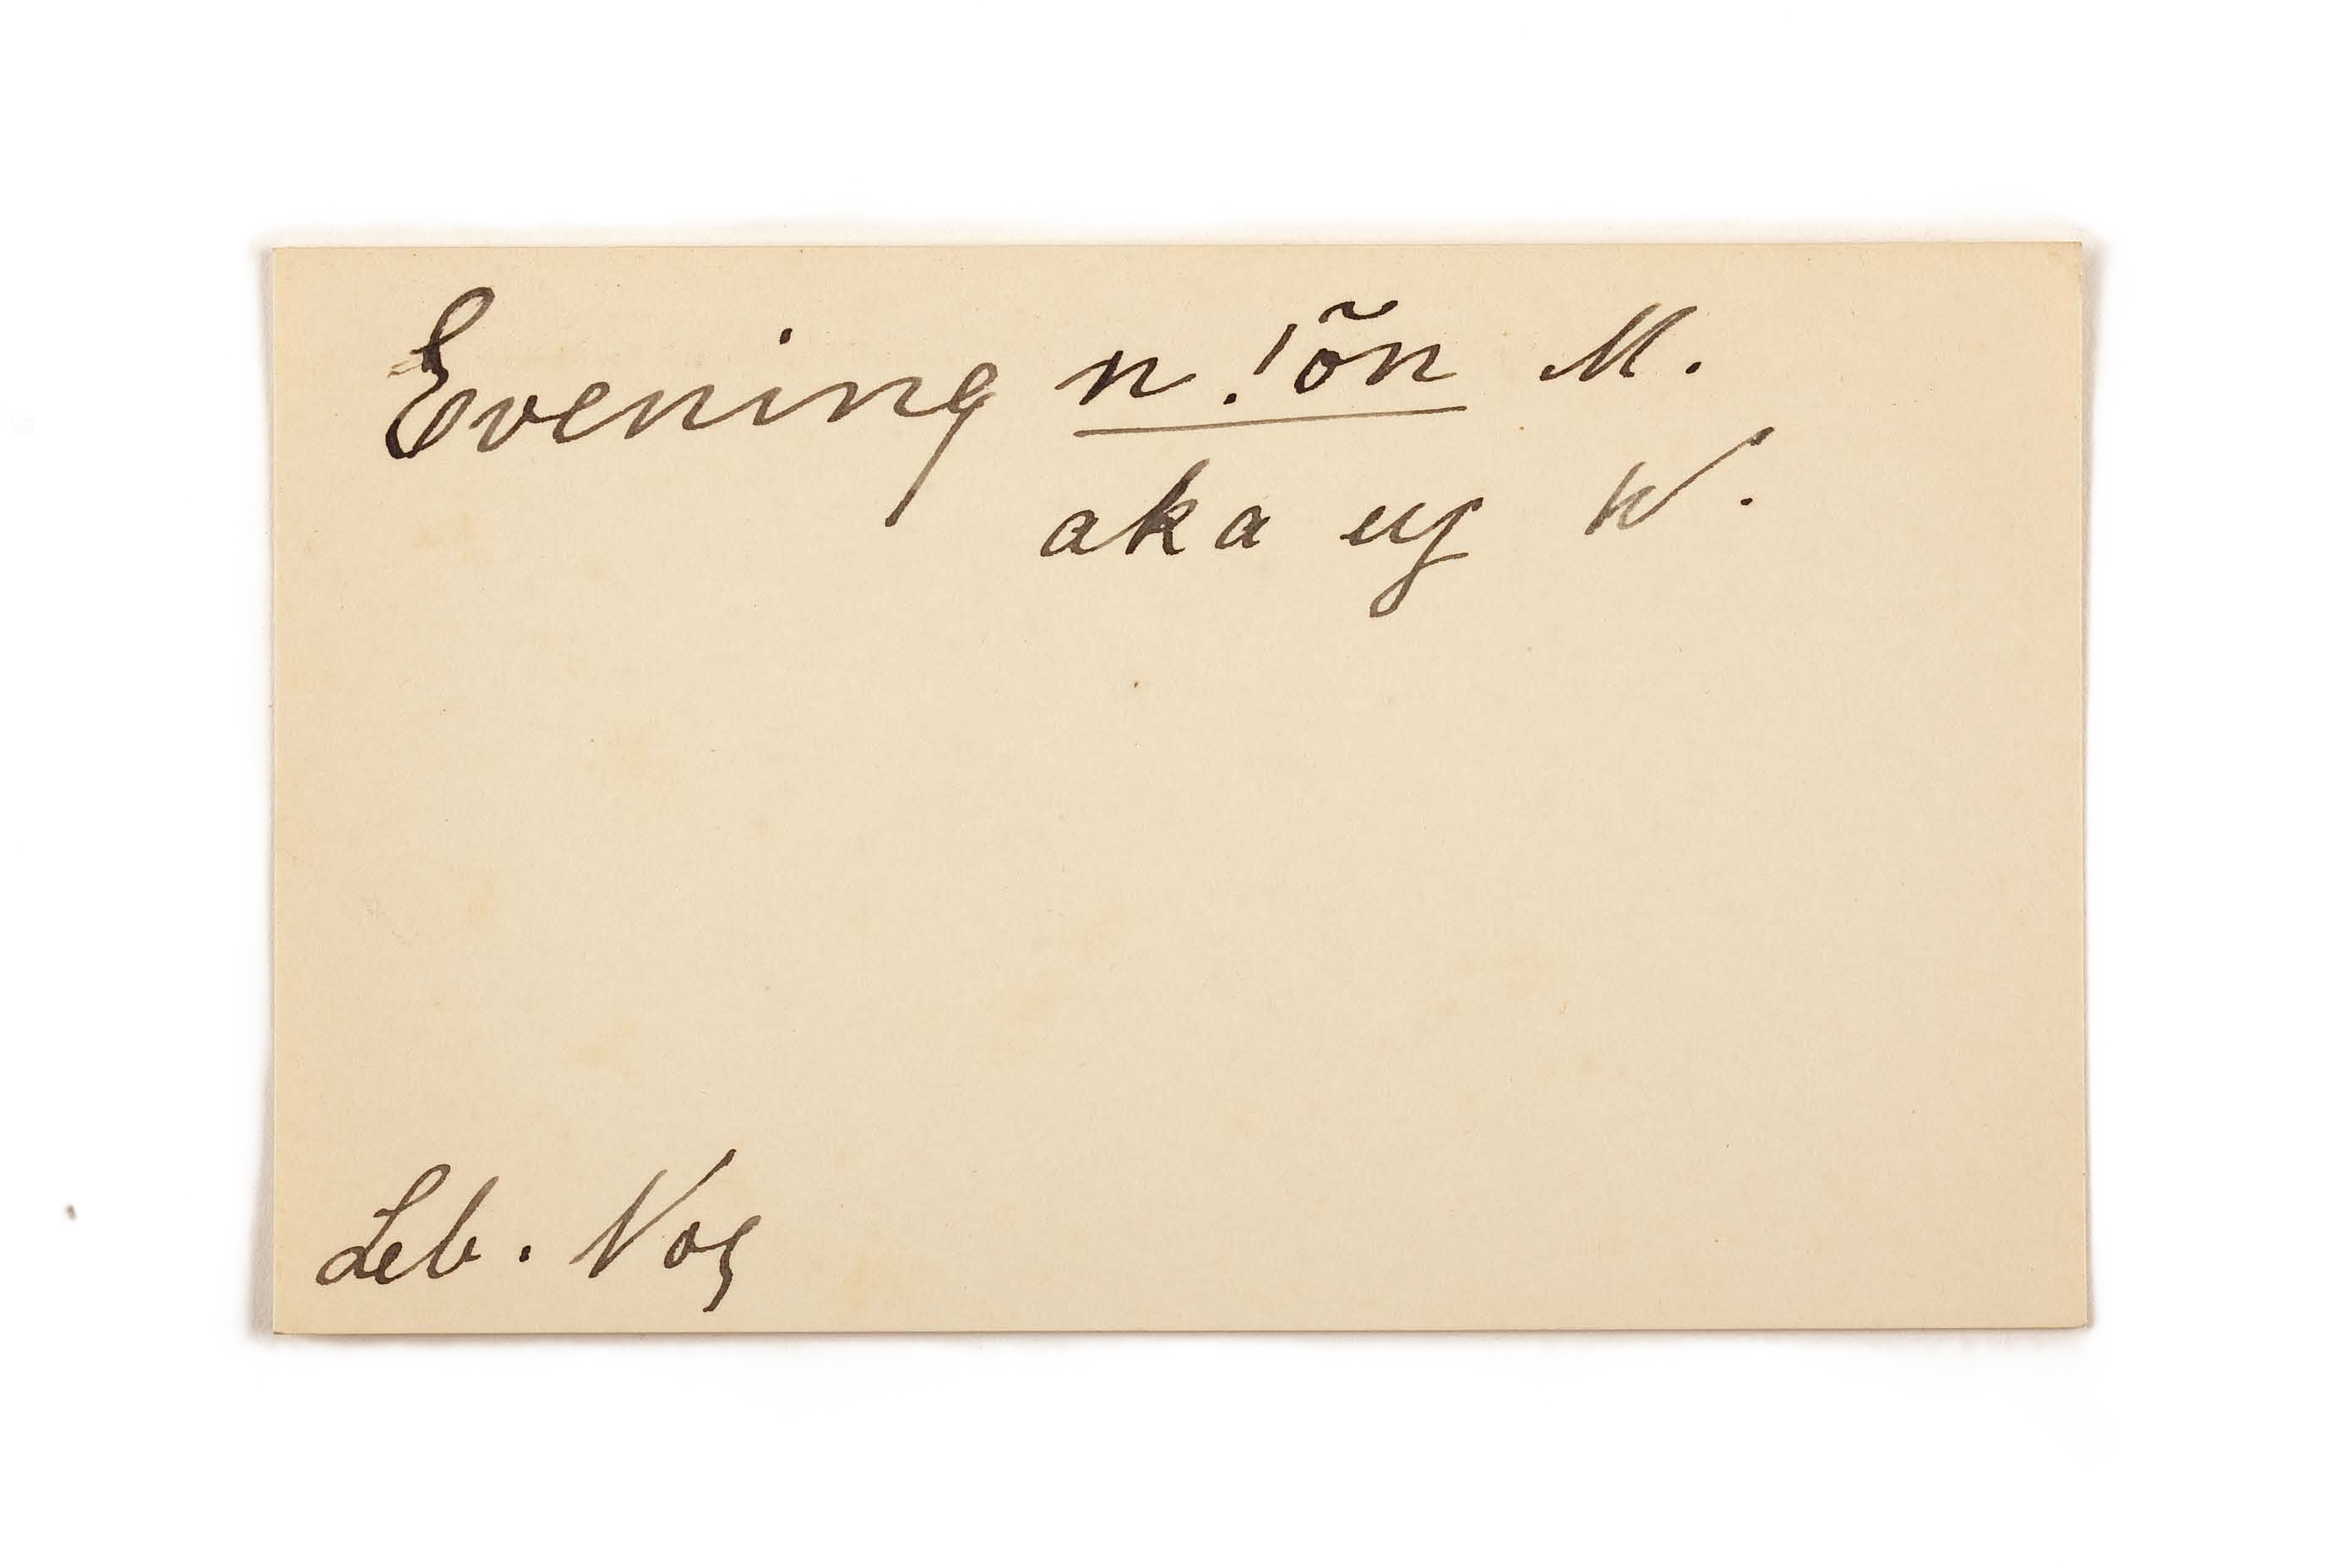 Evening n.!õn M.
aka uy W.
Leb. Vog